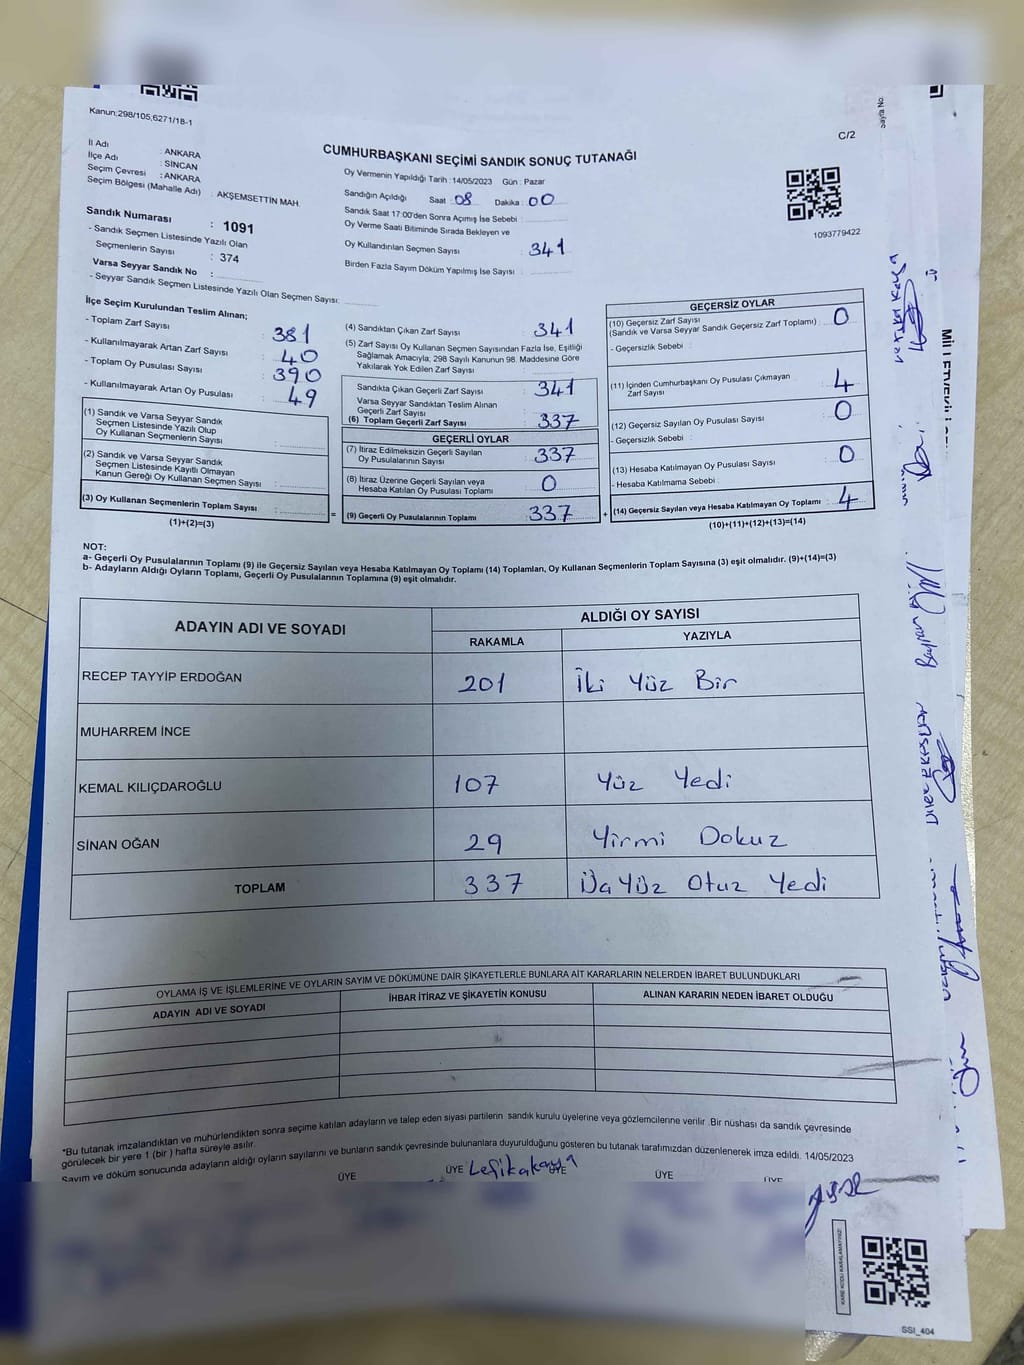 Kanun:298/105,6271/18-1
Sayfa No
C/2
İl Adı : ANKARA
İlçe Adı : SİNCAN
Seçim Çevresi : ANKARA
Seçim Bölgesi (Mahalle Adı) : AKŞEMSETTİN MAH.
CUMHURBAŞKANI SEÇİMİ SANDIK SONUÇ TUTANAĞI
Oy Vermenin Yapıldığı Tarih : 14/05/2023 Gün : Pazar
Sandığın Açıldığı Saat : 08 Dakika : 00
Sandık Saat 17:00'den Sonra Açımış İse Sebebi :
Oy Verme Saati Bitiminde Sırada Bekleyen ve
Oy Kullandırılan Seçmen Sayısı : 341
Birden Fazla Sayım Döküm Yapılmış İse Sayısı :
1093779422
Sandık Numarası : 1091
- Sandık Seçmen Listesinde Yazılı Olan
Seçmenlerin Sayısı : 374
Varsa Seyyar Sandık No :
- Seyyar Sandık Seçmen Listesinde Yazılı Olan Seçmen Sayısı:
İlçe Seçim Kurulundan Teslim Alınan;
- Toplam Zarf Sayısı : 381
- Kullanılmayarak Artan Zarf Sayısı : 40
- Toplam Oy Pusulası Sayısı : 390
- Kullanılmayarak Artan Oy Pusulası : 49
(1) Sandık ve Varsa Seyyar Sandık
Seçmen Listesinde Yazılı Olup
Oy Kullanan Seçmenlerin Sayısı :
(2) Sandık ve Varsa Seyyar Sandık
Seçmen Listesinde Kayıtlı Olmayan
Kanun Gereği Oy Kullanan Seçmen Sayısı :
(3) Oy Kullanan Seçmenlerin Toplam Sayısı : =
(1)+(2)=(3)
(4) Sandıktan Çıkan Zarf Sayısı : 341
(5) Zarf Sayısı Oy Kullanan Seçmen Sayısından Fazla İse, Eşitliği
Sağlamak Amacıyla; 298 Sayılı Kanunun 98. Maddesine Göre
Yakılarak Yok Edilen Zarf Sayısı :
Sandıkta Çıkan Geçerli Zarf Sayısı : 341
Varsa Seyyar Sandıktan Teslim Alınan
Geçerli Zarf Sayısı :
(6) Toplam Geçerli Zarf Sayısı : 337
GEÇERLİ OYLAR
(7) İtiraz Edilmeksizin Geçerli Sayılan
Oy Pusulalarının Sayısı : 337
(8) İtiraz Üzerine Geçerli Sayılan veya
Hesaba Katılan Oy Pusulası Toplamı : 0
(9) Geçerli Oy Pusulalarının Toplamı : 337 +
GEÇERSİZ OYLAR
(10) Geçersiz Zarf Sayısı
(Sandık ve Varsa Seyyar Sandık Geçersiz Zarf Toplamı) : 0
- Geçersizlik Sebebi :
(11) İçinden Cumhurbaşkanı Oy Pusulası Çıkmayan
Zarf Sayısı : 4
(12) Geçersiz Sayılan Oy Pusulası Sayısı : 0
- Geçersizlik Sebebi :
(13) Hesaba Katılmayan Oy Pusulası Sayısı : 0
- Hesaba Katılmama Sebebi :
(14) Geçersiz Sayılan veya Hesaba Katılmayan Oy Toplamı : 4
(10)+(11)+(12)+(13)=(14)
NOT:
a- Geçerli Oy Pusulalarının Toplamı (9) ile Geçersiz Sayılan veya Hesaba Katılmayan Oy Toplamı (14) Toplamları, Oy Kullanan Seçmenlerin Toplam Sayısına (3) eşit olmalıdır. (9)+(14)=(3)
b- Adayların Aldığı Oyların Toplamı, Geçerli Oy Pusulalarının Toplamına (9) eşit olmalıdır.
ADAYIN ADI VE SOYADI
ALDIĞI OY SAYISI
RAKAMLA YAZIYLA
RECEP TAYYİP ERDOĞAN 201 İki Yüz Bir
MUHARREM İNCE
KEMAL KILIÇDAROĞLU 107 Yüz Yedi
SİNAN OĞAN 29 Yirmi Dokuz
TOPLAM 337 Üç Yüz Otuz Yedi
OYLAMA İŞ VE İŞLEMLERİNE VE OYLARIN SAYIM VE DÖKÜMÜNE DAİR ŞİKAYETLERLE BUNLARA AİT KARARLARIN NELERDEN İBARET BULUNDUKLARI
ADAYIN ADI VE SOYADI İHBAR İTİRAZ VE ŞİKAYETİN KONUSU ALINAN KARARIN NEDEN İBARET OLDUĞU
*Bu tutanak imzalandıktan ve mühürlendikten sonra seçime katılan adayların ve talep eden siyasi partilerin sandık kurulu üyelerine veya gözlemcilerine verilir .Bir nüshası da sandık çevresinde
görülecek bir yere 1 (bir ) hafta süreyle asılır.
Sayım ve döküm sonucunda adayların aldığı oyların sayılarını ve bunların sandık çevresinde bulunanlara duyurulduğunu gösteren bu tutanak tarafımızdan düzenlenerek imza edildi. 14/05/2023
ÜYE ÜYE ÜYE ÜYE ÜYE
KARE KODU KARALAMAYINIZ!
SSI_404